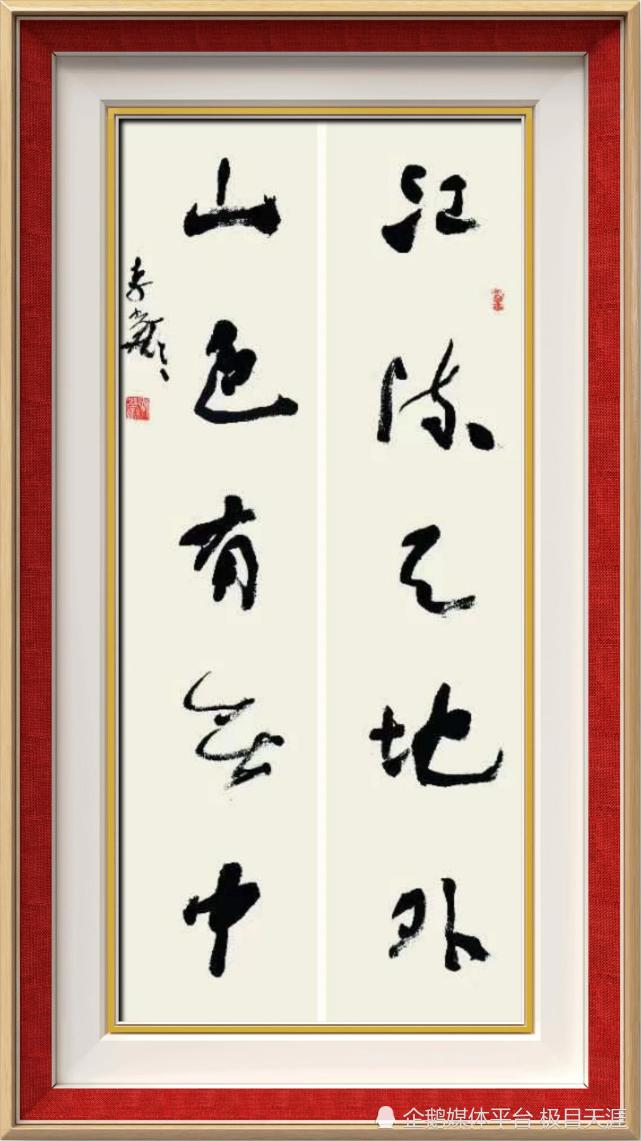 江流天地外
山色有無中
企鹅媒体平台 极目天涯